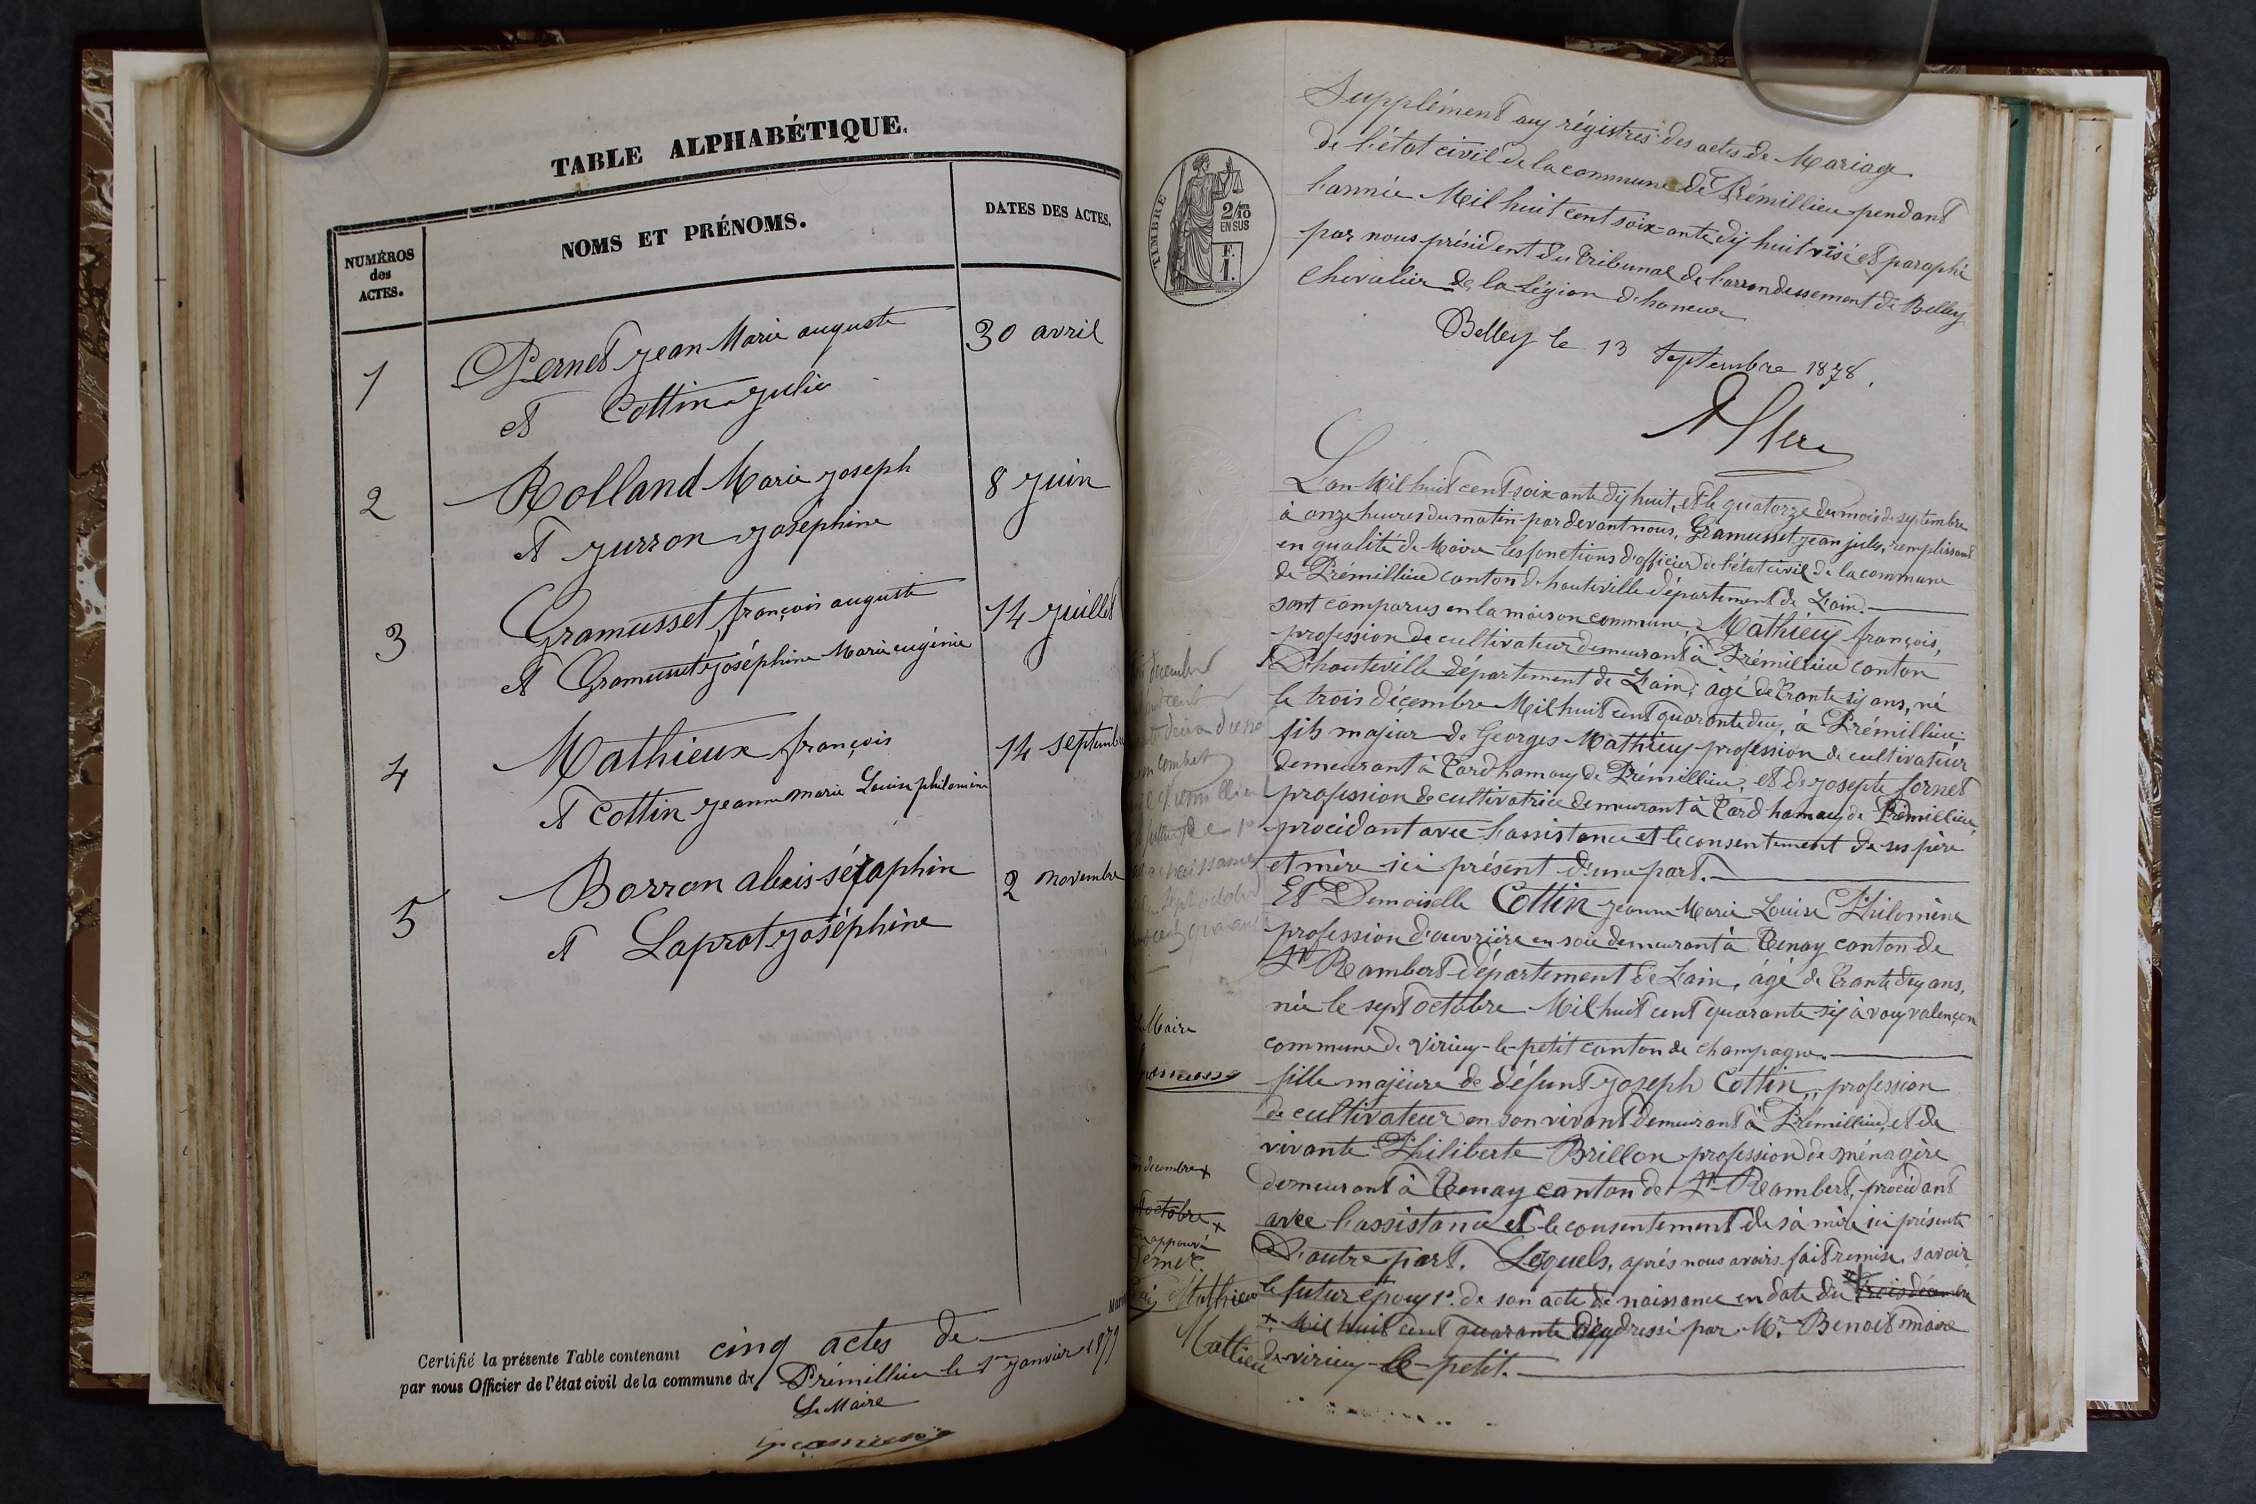 TABLE ALPHABÉTIQUE.
NUMÉROS
des
ACTES.
NOMS ET PRÉNOMS.
DATES DES ACTES.
1 Pernet jean Marie auguste 30 avril
et Cottin julie
2 Rolland Marie joseph 8 juin
et jurron joséphine
3 Gramusset françois auguste 14 juillet
et Gramusset joséphine Marie eugénie
4 Mathieux françois 14 septembre
et Cottin jeanne marie Louise philomène
5 Borron alexis séraphin 2 novembre
et Laprat joséphine
Certifié la présente Table contenant cinq actes de
par nous Officier de l'état civil de la commune de Prémillieu le 1er janvier 1879
Le Maire
TIMBRE
2/10
EN SUS
F.
1.
Supplément aux régistres des actes de Mariage
de l'état civil de la commune de Prémillieu pendant
l'année Mil huit cent soixante dix huit visé et paraphé
par nous président du tribunal de l'arrondissement de Belley
Chevalier de la Légion d'honeur
Belley le 13 Septembre 1878.
L'an Mil huit cent soixante dix huit, et le quatorze du mois de septembre
à onze heures du matin par devant nous, Gramusset jean jules, remplissant
en qualité de Maire les fonctions d'officier de l'état civil de la commune
de Prémillieu canton d'hauteville département de L'ain.
sont comparus en la maison commune, Mathieux françois,
profession de cultivateur demeurant à Prémillieu canton
D'hauteville département de L'ain, agé de trante six ans, né
le trois décembre Mil huit cent quarante deux, à Prémillieu
fils majeur de Georges Mathieux profession de cultivateur
demeurant à tard hamaux de Prémillieu, et de josepte fornet
profession de cultivatrice demeurant à tard hamaux de Prémillieu,
procédant avec l'assistance et le consentement de ses père
et mère ici présent d'une part.
Et Demoiselle Cottin jeanne Marie Louise Philomène
profession d'ouvrière en soie demeurant à Tenay canton de
St Rambert département de L'ain, âgé de trante deux ans,
née le sept octobre Mil huit cent quarante six à voux valençon
commune de virieux-le-petit canton de champagne.
fille majeure de défunt joseph Cottin, profession
de cultivateur en son vivant demeurant à Prémillieu, et de
vivante Philiberte Brillon profession de ménagère
demeurant à Tenay canton de St Rambert, procédant
avec l'assistance et le consentement de sa mère ici présente
D'autre part. Lesquels, après nous avoirs fait remise, savoir,
le futur époux 1°. de son acte de naissance en date du trois décembre
+ Mil huit cent quarante deux dressé par Mr Benoit maire
de virieux-le-petit.
décembre
deux dressé
Combet
naissance
sept octobre
Maire
décembre +
octobre +
approuvé
Mathieu
Mattieu